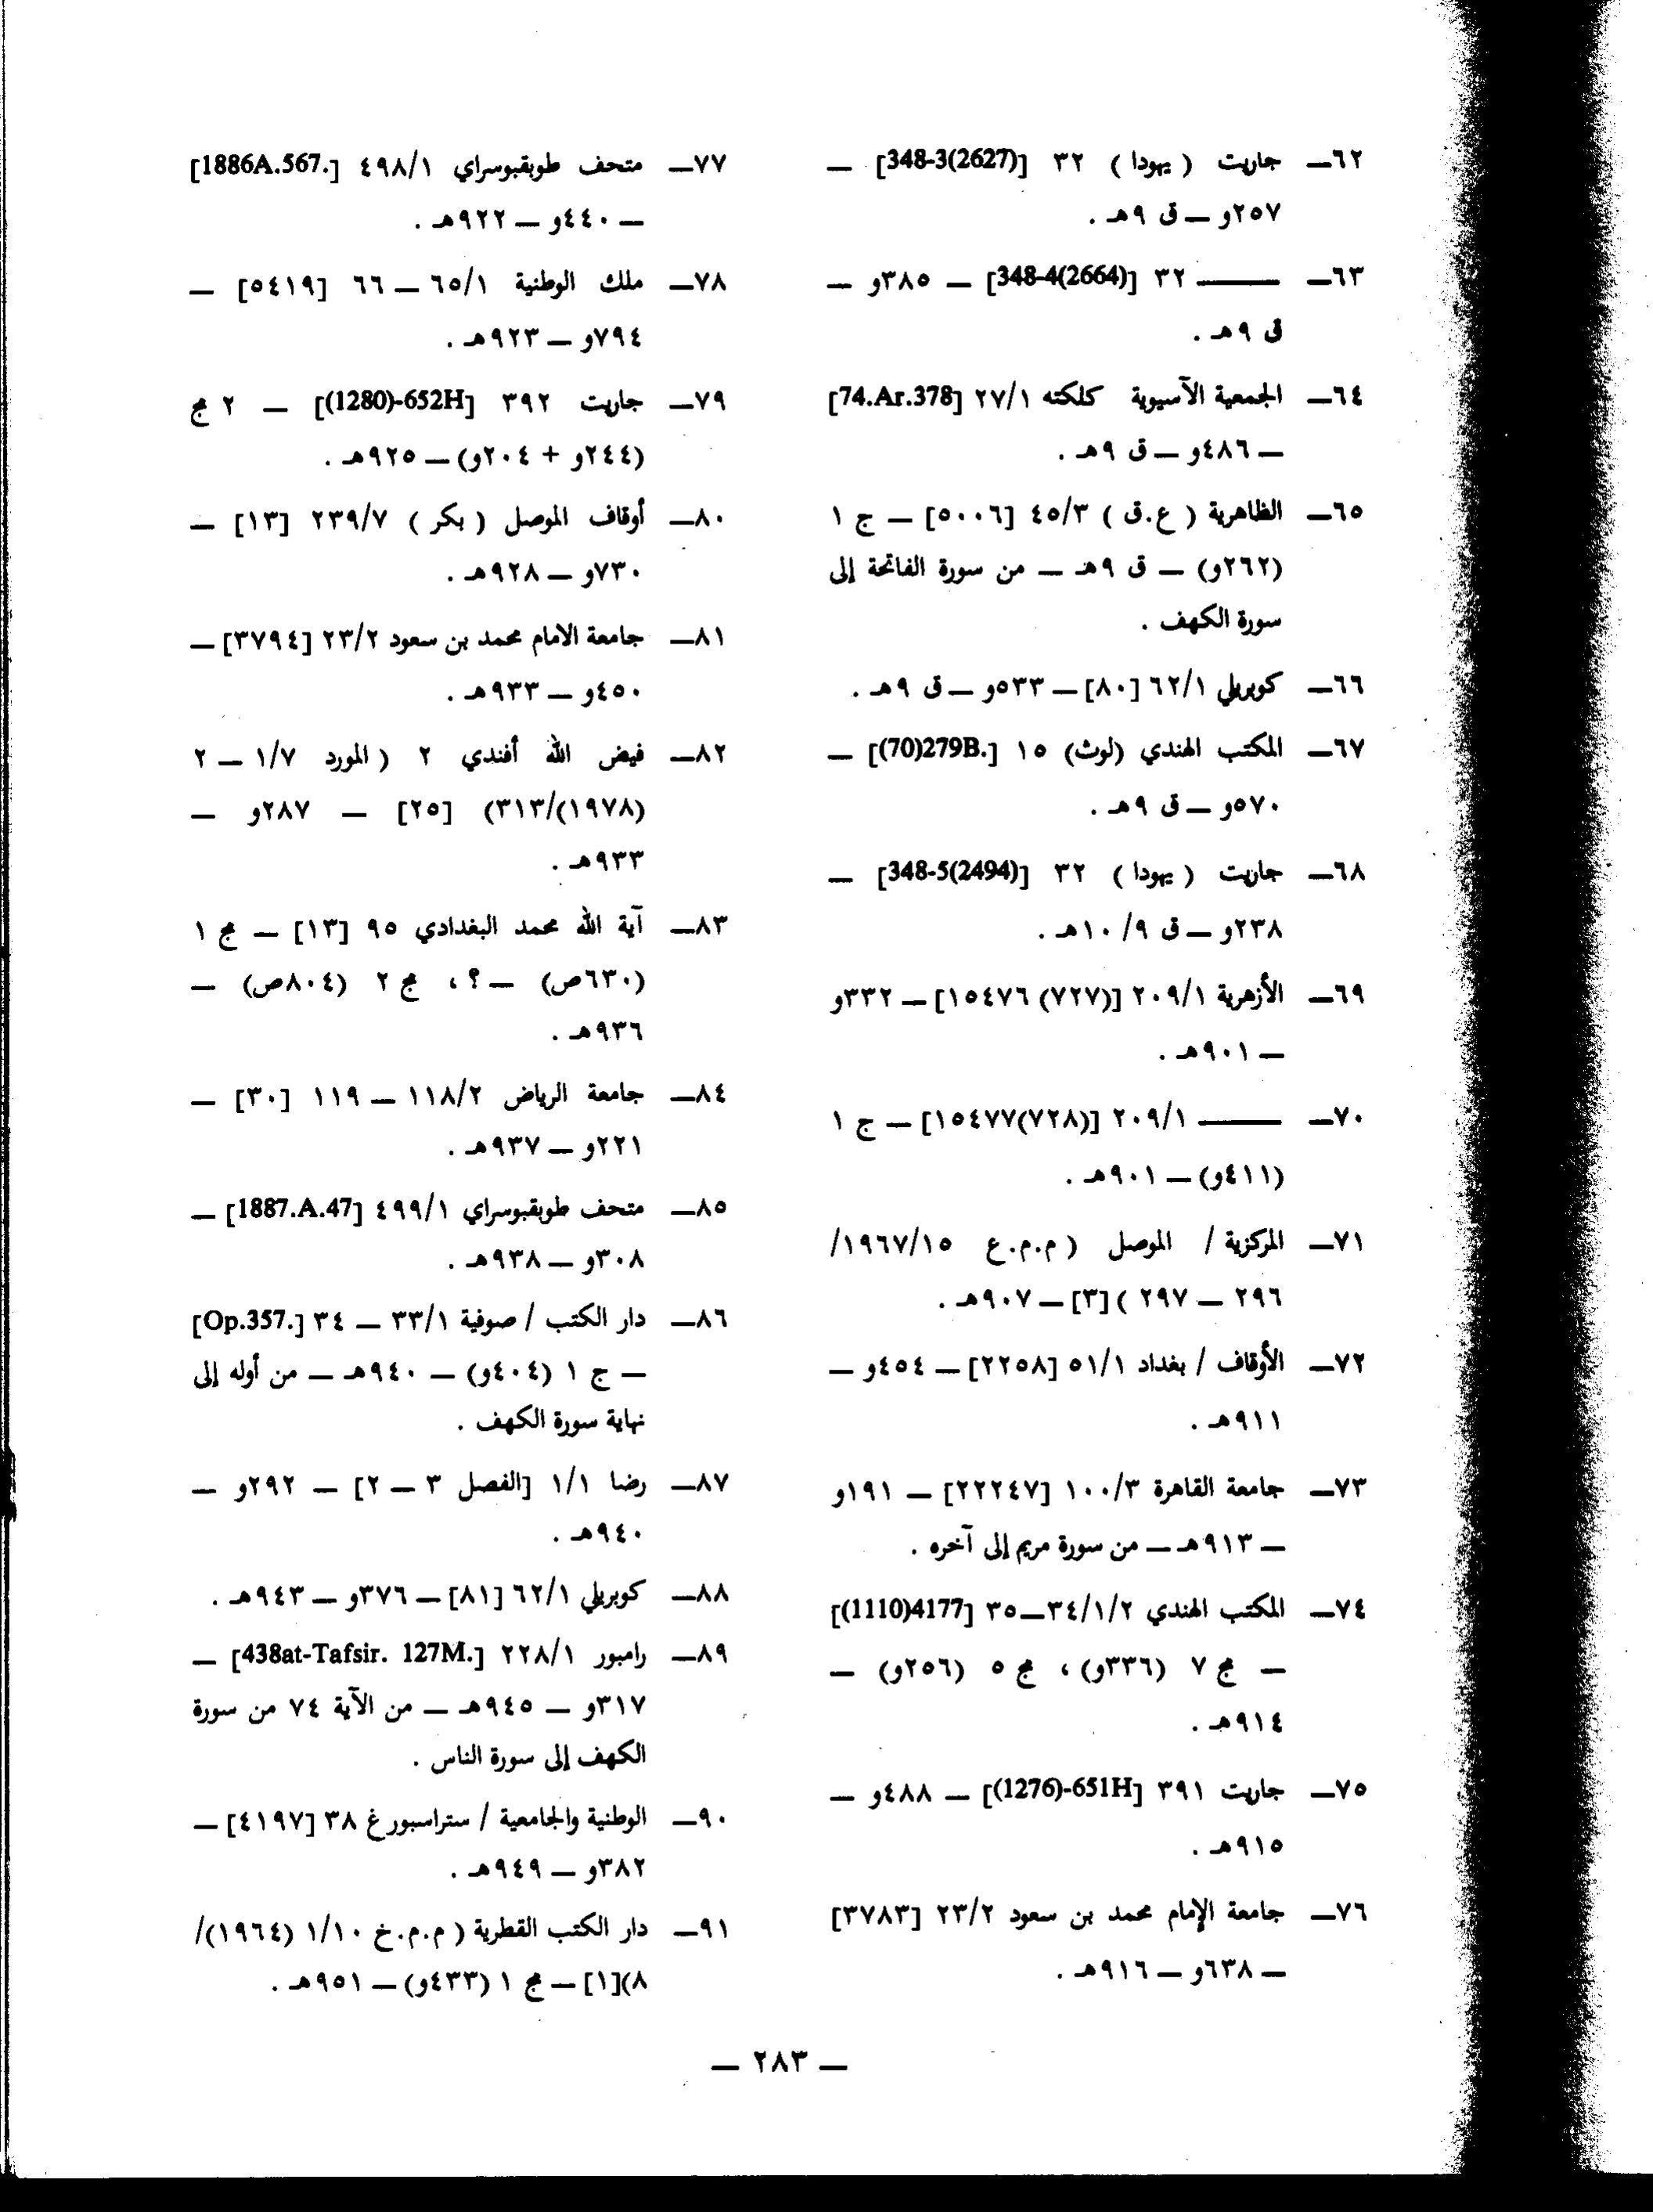 ٦٢ــ جاريت ( يهودا ) ٣٢ [348-3(2627)] ــ
٢٥٧و ــ ق ٩هـ .
٦٣ــ ــــــــ ٣٢ [348-4(2664)] ــ ٣٨٥و ــ
ق ٩هـ .
٦٤ــ الجمعية الآسيوية كلكته ٢٧/١ [74.Ar.378]
ــ ٤٨٦و ــ ق ٩هـ .
٦٥ــ الظاهرية ( ع.ق ) ٤٥/٣ [٥٠٠٦] ــ ج ١
(٢٦٢و) ــ ق ٩هـ ــ من سورة الفاتحة إلى
سورة الكهف .
٦٦ــ كوبريلي ٦٢/١ [٨٠] ــ ٥٣٣و ــ ق ٩هـ .
٦٧ــ المكتب الهندي (لوث) ١٥ [(70)279B.] ــ
٥٧٠و ــ ق ٩هـ .
٦٨ــ جاريت ( يهودا ) ٣٢ [348-5(2494)] ــ
٢٣٨و ــ ق ٩/ ١٠هـ .
٦٩ــ الأزهرية ٢٠٩/١ [(٧٢٧) ١٥٤٧٦] ــ ٣٣٢و
ــ ٩٠١هـ .
٧٠ــ ــــــــ ٢٠٩/١ [(٧٢٨)١٥٤٧٧] ــ ج ١
(٤١١و) ــ ٩٠١هـ .
٧١ــ المركزية / الموصل ( م.م.ع ١٩٦٧/١٥/
٢٩٦ ــ ٢٩٧ ) [٣] ــ ٩٠٧هـ .
٧٢ــ الأوقاف / بغداد ٥١/١ [٢٢٥٨] ــ ٤٥٤و ــ
٩١١هـ .
٧٣ــ جامعة القاهرة ١٠٠/٣ [٢٢٢٤٧] ــ ١٩١و
ــ ٩١٣هـ ــ من سورة مريم إلى آخره .
٧٤ــ المكتب الهندي ٣٤/١/٢ــ٣٥ [(1110)4177]
ــ مج ٧ (٣٣٦و) ، مج ٥ (٢٥٦و) ــ
٩١٤هـ .
٧٥ــ جاريت ٣٩١ [(1276)-651H] ــ ٤٨٨و ــ
٩١٥هـ .
٧٦ــ جامعة الإمام محمد بن سعود ٢٣/٢ [٣٧٨٣]
ــ ٦٣٨و ــ ٩١٦هـ .
٧٧ــ متحف طوبقبوسراي ٤٩٨/١ [1886A.567.]
ــ ٤٤٠و ــ ٩٢٢هـ .
٧٨ــ ملك الوطنية ٦٥/١ ــ ٦٦ [٥٤١٩] ــ
٧٩٤و ــ ٩٢٣هـ .
٧٩ــ جاريت ٣٩٢ [(1280)-652H] ــ ٢ مج
(٢٤٤و + ٢٠٤و) ــ ٩٢٥هـ .
٨٠ــ أوقاف الموصل ( بكر ) ٢٣٩/٧ [١٣] ــ
٧٣٠و ــ ٩٢٨هـ .
٨١ــ جامعة الامام محمد بن سعود ٢٣/٢ [٣٧٩٤] ــ
٤٥٠و ــ ٩٣٣هـ .
٨٢ــ فيض الله أفندي ٢ ( المورد ١/٧ ــ ٢
(١٩٧٨)/٣١٣) [٢٥] ــ ٢٨٧و ــ
٩٣٣هـ .
٨٣ــ آية الله محمد البغدادي ٩٥ [١٣] ــ مج ١
(٦٣٠ص) ــ ؟ ، مج ٢ (٨٠٤ص) ــ
٩٣٦هـ .
٨٤ــ جامعة الرياض ١١٨/٢ ــ ١١٩ [٣٠] ــ
٢٢١و ــ ٩٣٧هـ .
٨٥ــ متحف طوبقبوسراي ٤٩٩/١ [1887.A.47] ــ
٣٠٨و ــ ٩٣٨هـ .
٨٦ــ دار الكتب / صوفية ٣٣/١ ــ ٣٤ [Op.357.]
ــ ج ١ (٤٠٤و) ــ ٩٤٠هـ ــ من أوله إلى
نهاية سورة الكهف .
٨٧ــ رضا ١/١ [الفصل ٣ ــ ٢] ــ ٢٩٢و ــ
٩٤٠هـ .
٨٨ــ كوبريلي ٦٢/١ [٨١] ــ ٣٧٦و ــ ٩٤٣هـ .
٨٩ــ رامبور ٢٢٨/١ [438at-Tafsir. 127M.] ــ
٣١٧و ــ ٩٤٥هـ ــ من الآية ٧٤ من سورة
الكهف إلى سورة الناس .
٩٠ــ الوطنية والجامعية / ستراسبورغ ٣٨ [٤١٩٧] ــ
٣٨٢و ــ ٩٤٩هـ .
٩١ــ دار الكتب القطرية ( م.م.خ ١/١٠ (١٩٦٤)/
٨)[١] ــ مج ١ (٤٣٣و) ــ ٩٥١هـ .
ــ ٢٨٣ ــ